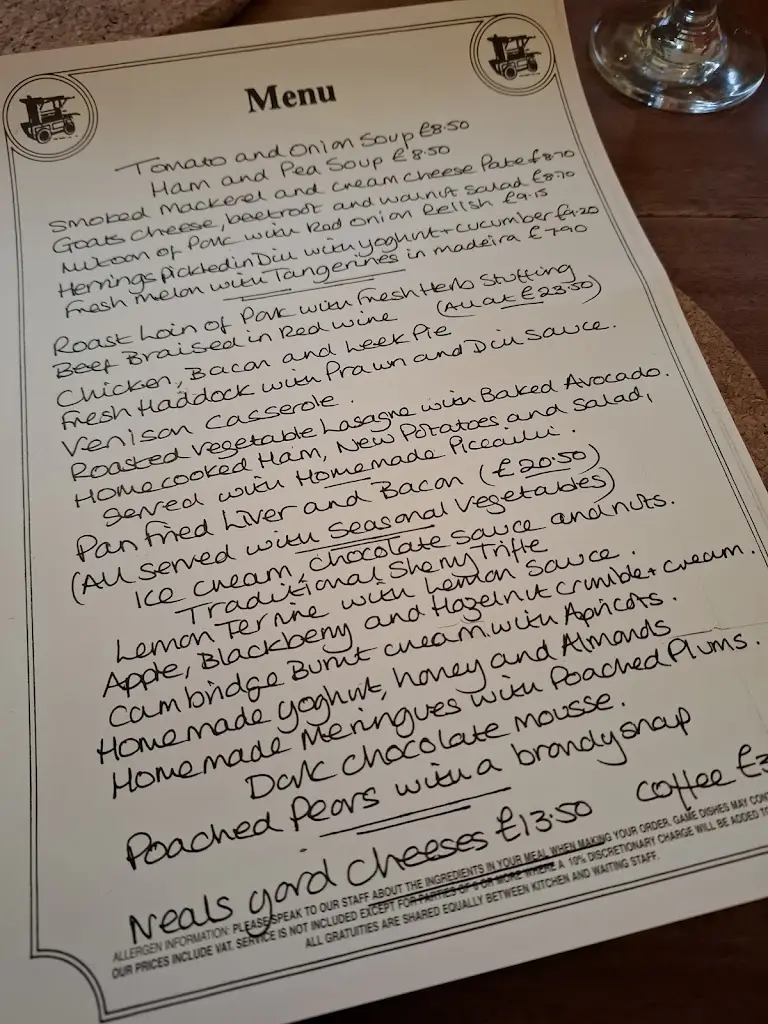 Menu
Tomato and Onion Soup £8.50
Ham and Pea Soup £8.50
Smoked Mackerel and cream cheese Pate £8.70
Goats Cheese, beetroot and walnut Salad £8.70
of Pork with Red Onion Relish £9.15
Herrings pickled in Dill with yoghurt + cucumber £9.20
Fresh melon with Tangerines in madeira £7.90
Roast Loin of Pork with Fresh Herb Stuffing
Beef Braised in Red wine (All at £23.50)
Chicken, Bacon and Leek Pie
Fresh Haddock with Prawn and Dill Sauce.
Venison Casserole.
Roasted Vegetable Lasagne with Baked Avocado.
Home cooked Ham, New Potatoes and Salad,
Served with Homemade Piccalilli.
Pan fried Liver and Bacon (£20.50)
(All served with Seasonal Vegetables)
Ice cream, chocolate sauce and nuts.
Traditional Sherry Trifle
Lemon Terrine with Lemon Sauce.
Apple, Blackberry and Hazelnut crumble + cream.
Cambridge Burnt cream with Apricots.
Homemade yoghurt, honey and Almonds
Homemade Meringues with Poached Plums.
Dark chocolate mousse.
Poached Pears with a brandysnap
Neals yard cheeses £13.50 coffee £3
ALLERGEN INFORMATION: PLEASE SPEAK TO OUR STAFF ABOUT THE INGREDIENTS IN YOUR MEAL WHEN MAKING YOUR ORDER. GAME DISHES MAY CON
OUR PRICES INCLUDE VAT. SERVICE IS NOT INCLUDED EXCEPT FOR PARTIES OF 8 OR MORE WHERE A 10% DISCRETIONARY CHARGE WILL BE ADDED TO
ALL GRATUITIES ARE SHARED EQUALLY BETWEEN KITCHEN AND WAITING STAFF.